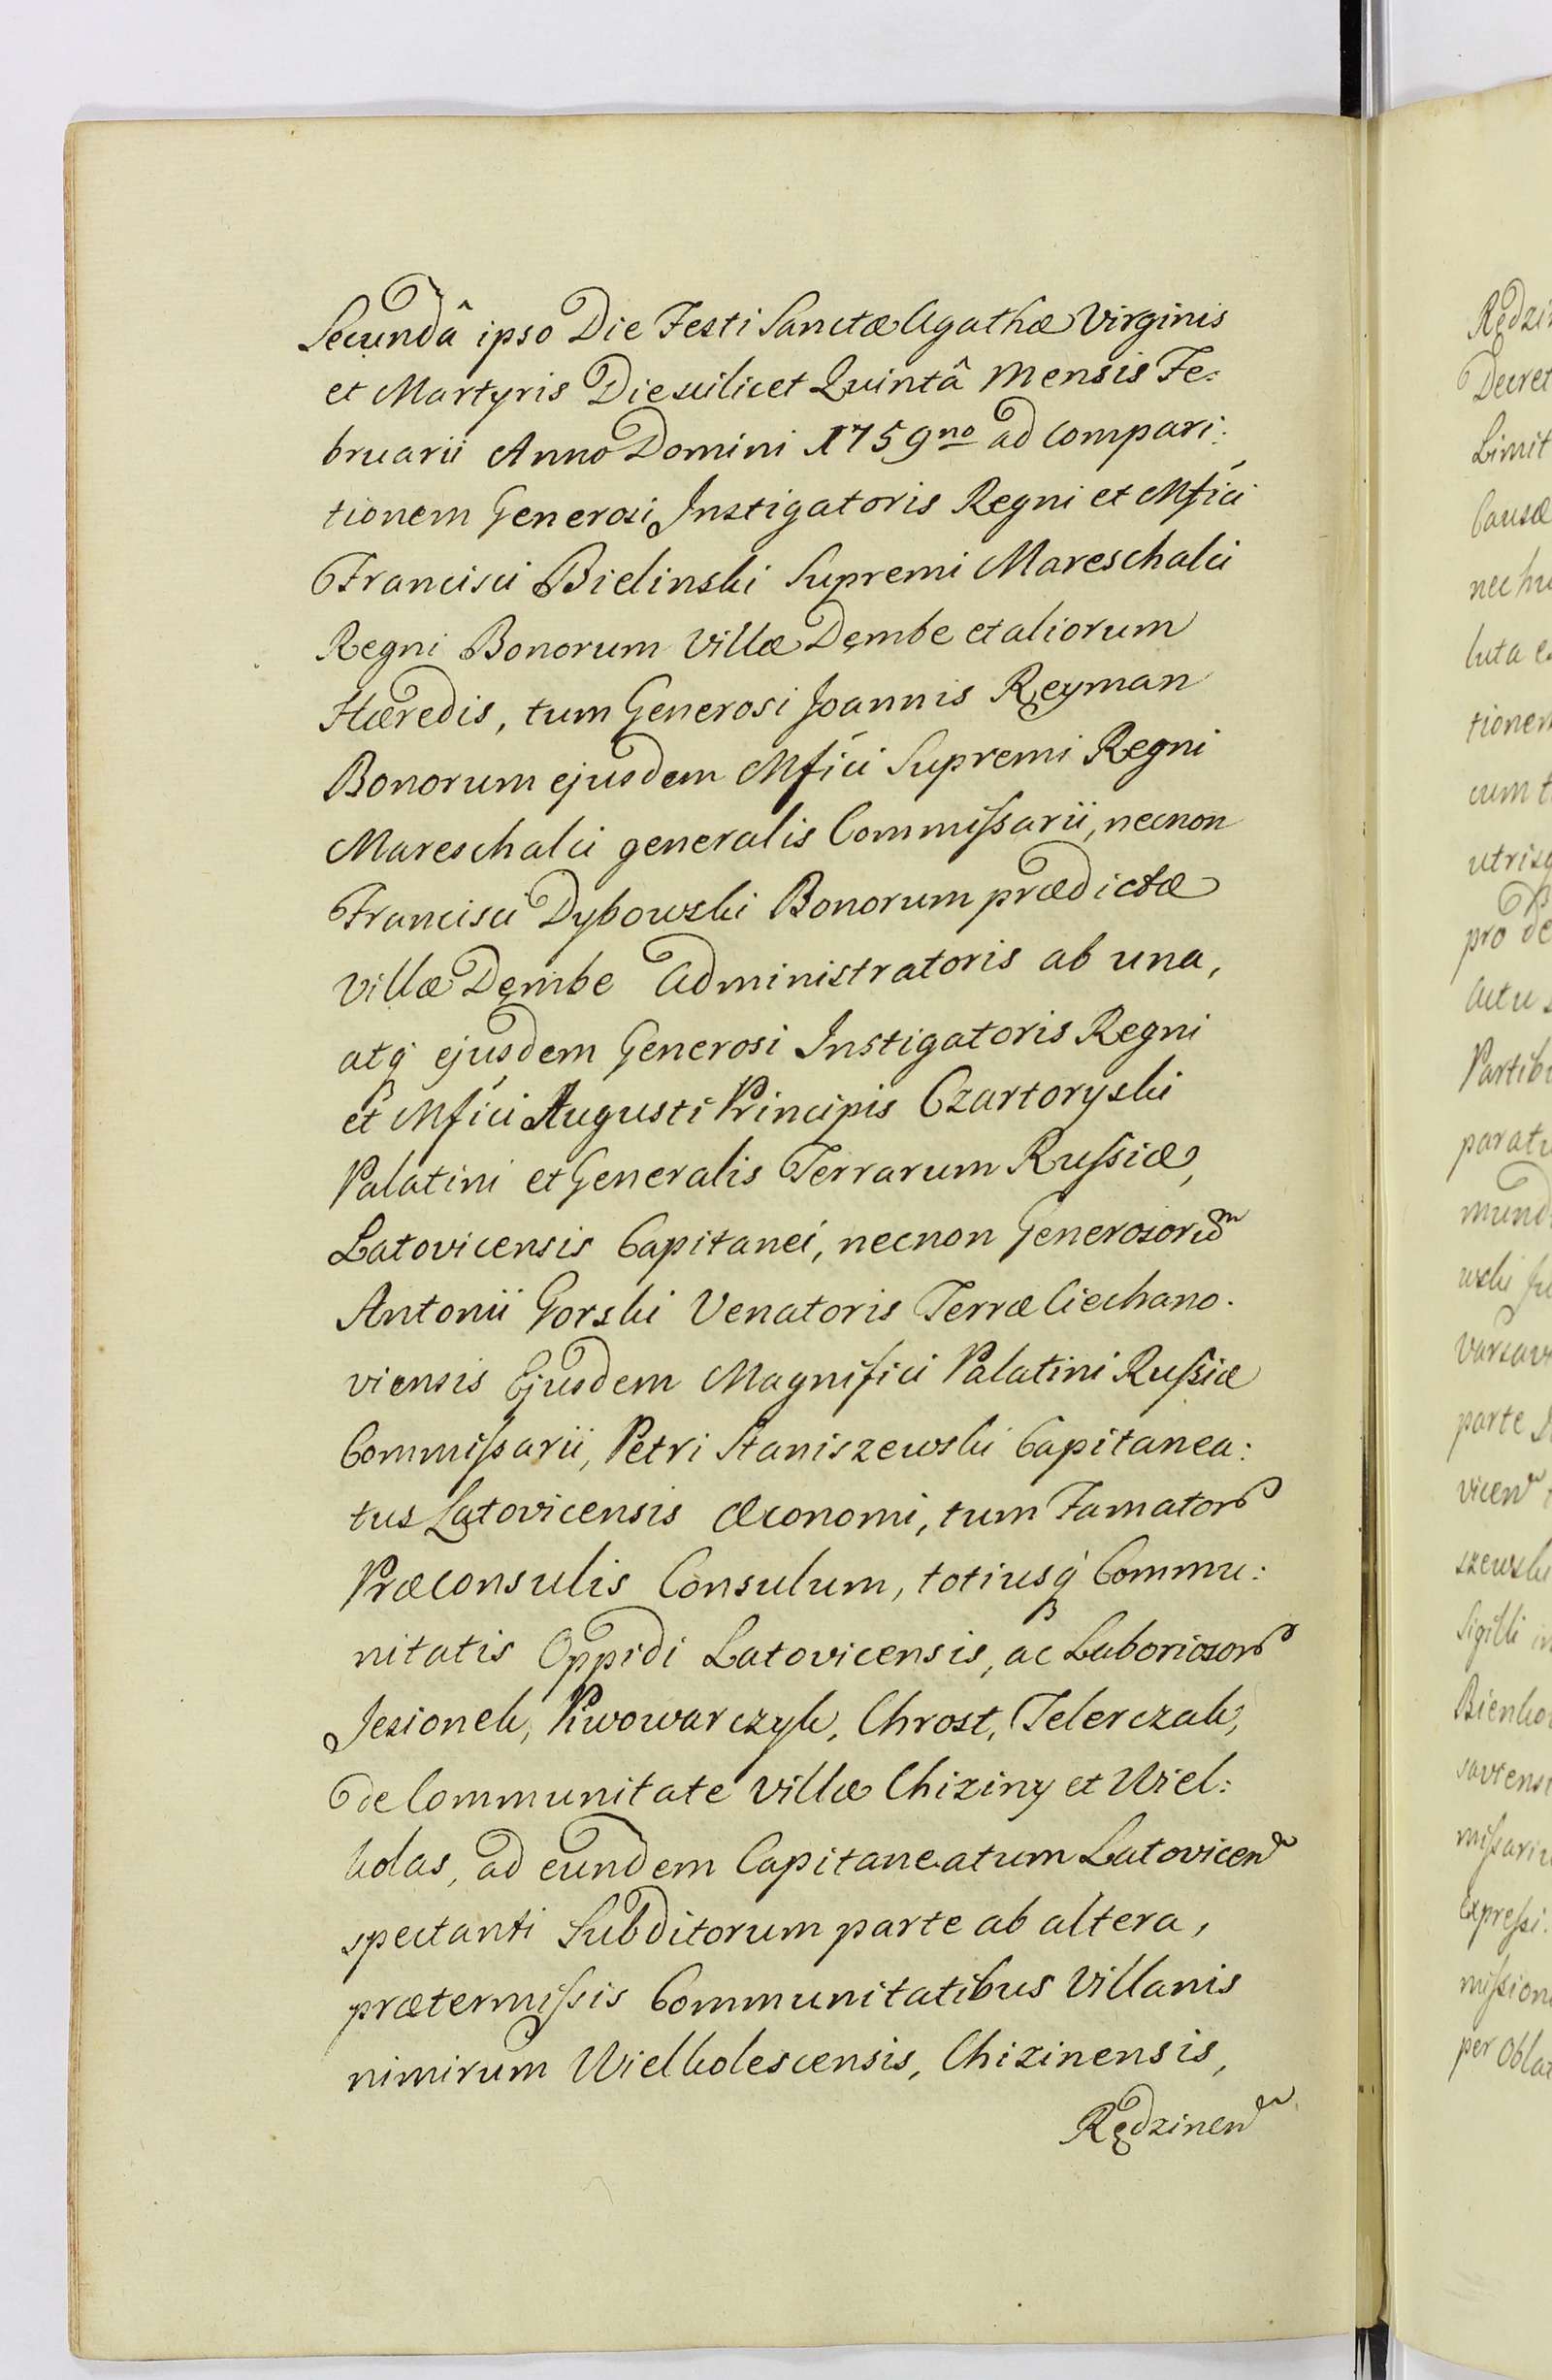 Secundâ ipso Die Festi Sanctæ Agathæ Virginis
et Martyris Die scilicet Quintâ Mensis Fe:
bruarii Anno Domini 1759no ad Compari:
tionem Generosi Instigatoris Regni et Mfici
Francisci Bielinski Supremi Mareschalci
Regni Bonorum Villæ Dembe et aliorum
Hæredis, tum Generosi Joannis Reyman
Bonorum ejusdem Mfici Supremi Regni
Mareschalci generalis Commissarii, necnon
Francisci Dybowski Bonorum prædictæ
Villæ Dembe Administratoris ab una,
atq ejusdem Generosi Instigatoris Regni
et Mfici Augusti Principis Czartoryski
Palatini et Generalis Terrarum Russiæ,
Latovicensis Capitanei, necnon Generosorum
Antonii Gorski Venatoris Terræ Ciechano.
viensis Ejusdem Magnifici Palatini Russiæ
Commissarii, Petri Staniszewski Capitanea:
tus Latovicensis Œconomi, tum Famator
Præconsulis Consulum, totiusq Commu:
nitatis Oppidi Latovicensis, ac Laboriosor
Jesionek, Piwowarczyk, Chrost, Telerczak,
de Communitate Villæ Chiziny et Wiel:
kolas, ad eundem Capitaneatum Latovicen
spectanti Subditorum parte ab altera,
prætermissis Communitatibus Villanis
nimirum Wielkolescensis, Chizinensis,
Rędzinen
Decret
Limit
Causæ
pro de
Actu
Partib
parat
parte
vicen
Sigilli
per Oblat